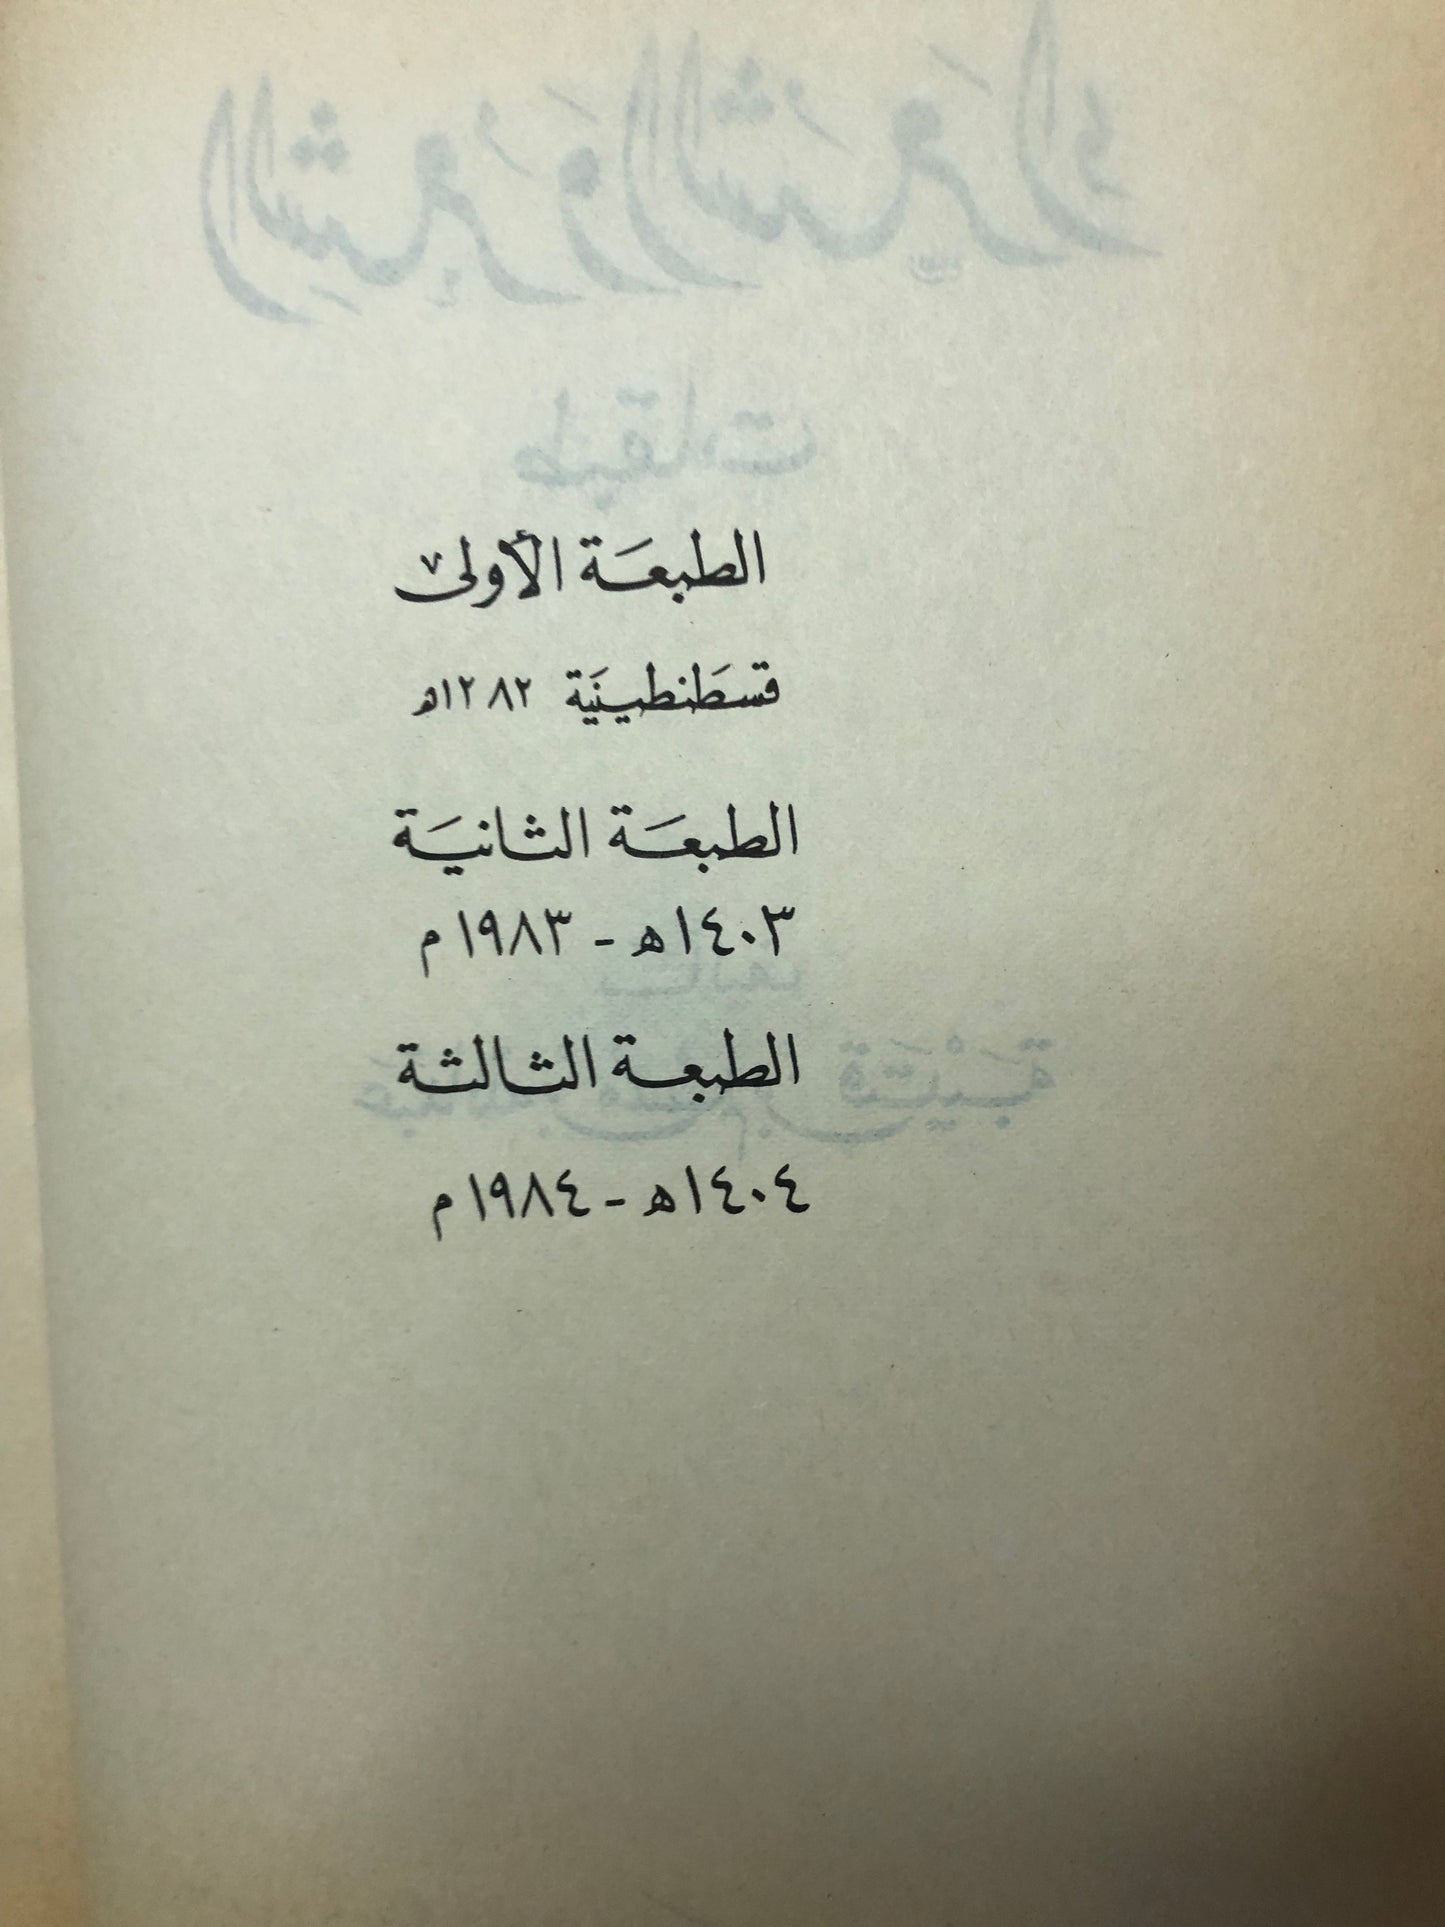 الطبعَة الأولىٰ
قسطَنطينيَة ١٢٨٢هـ
الطبعَة الثانيَة
١٤٠٣هـ - ١٩٨٣م
الطبعة الثالثة
١٤٠٤هـ - ١٩٨٤م